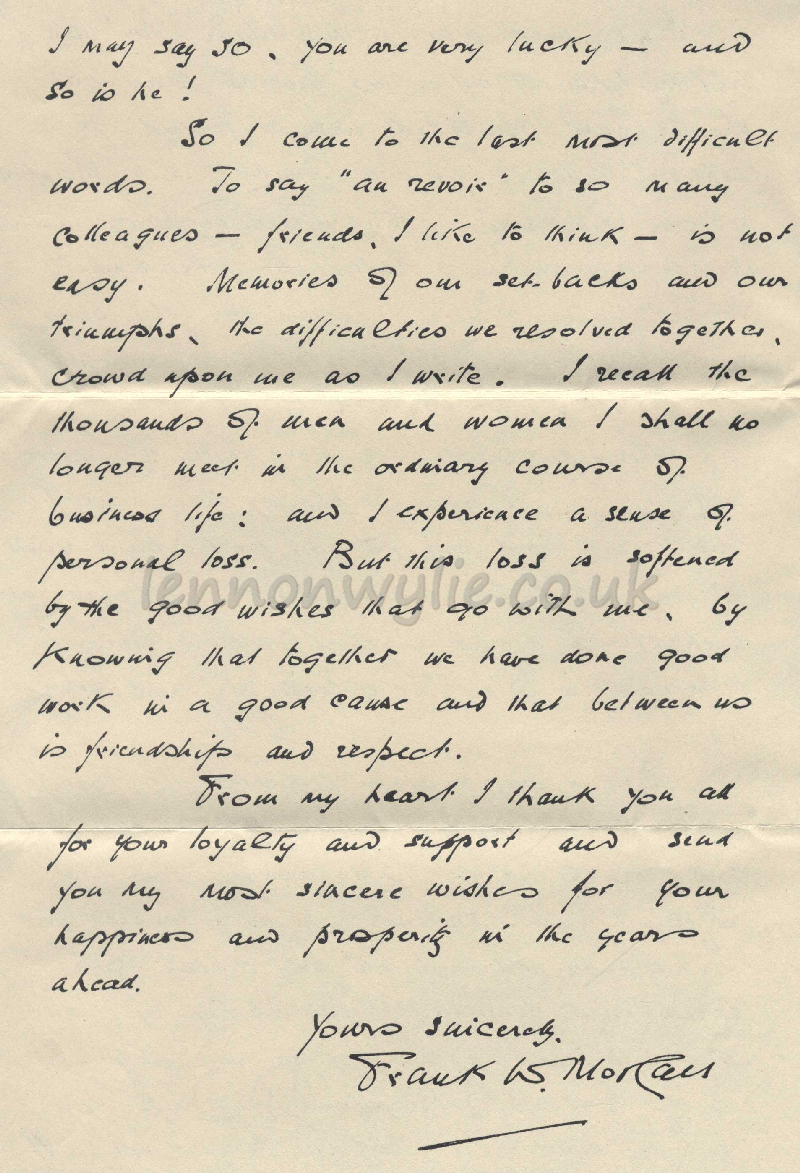 I may say so, you are very lucky — and
so is he!
So I come to the last most difficult
words. To say "au revoir" to so many
colleagues — friends, I like to think — is not
easy. Memories of our set-backs and our
triumphs, the difficulties we resolved together,
crowd upon me as I write. I recall the
thousands of men and women I shall no
longer meet in the ordinary course of
business life: and I experience a sense of
personal loss. But this loss is softened
lennonwylie.co.uk
by the good wishes that go with me, by
knowing that together we have done good
work in a good cause and that between us
is friendship and respect.
From my heart I thank you all
for your loyalty and support and send
you my most sincere wishes for your
happiness and prosperity in the years
ahead.
Yours sincerely,
Frank W. Morgan